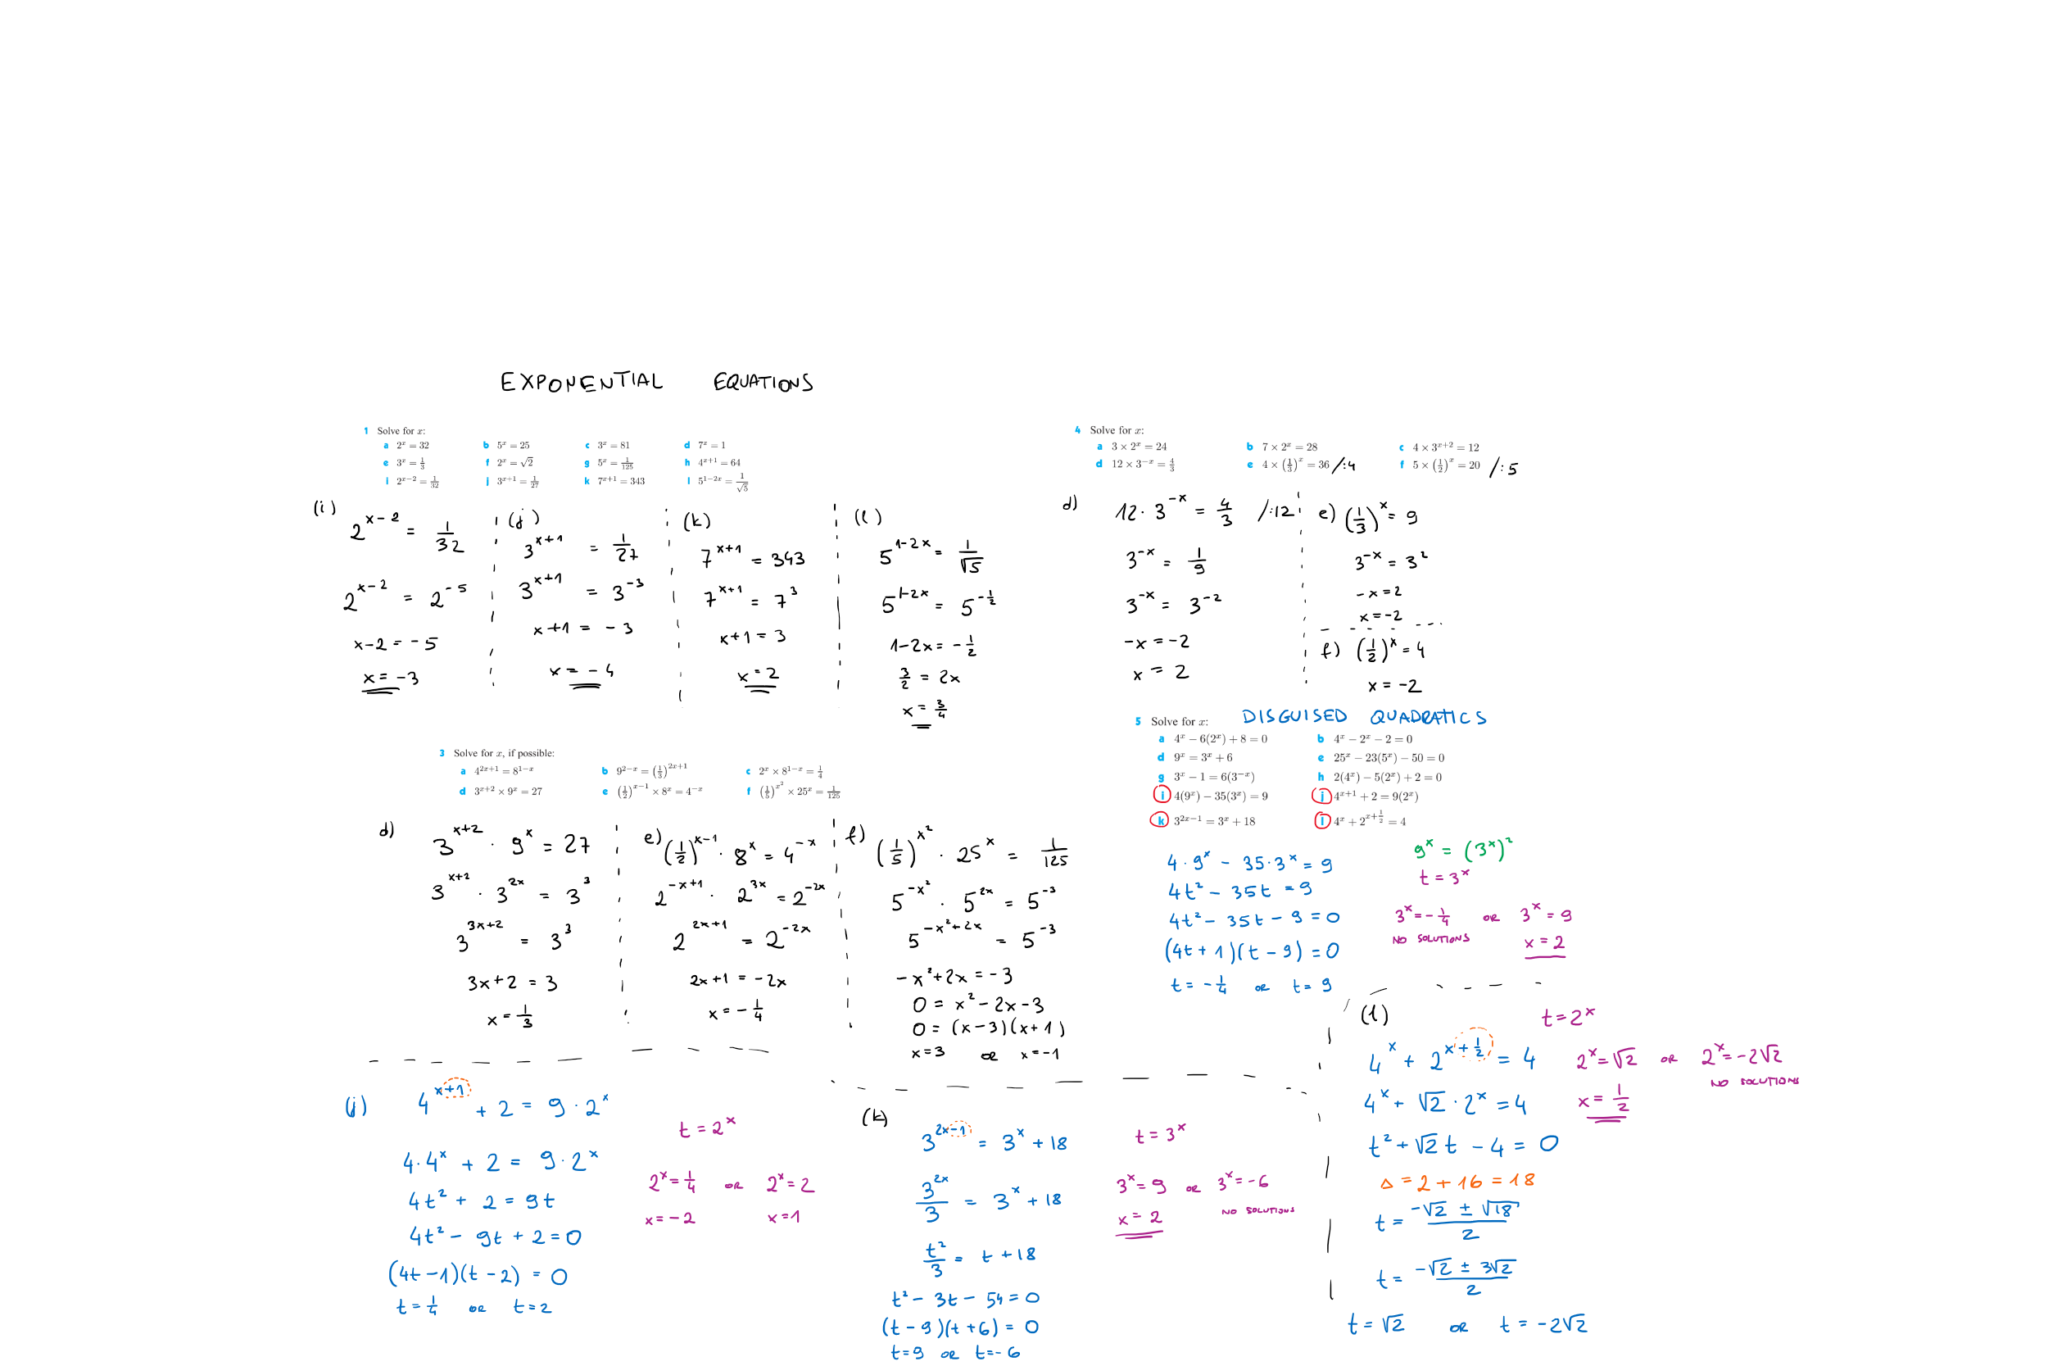 EXPONENTIAL EQUATIONS
1 Solve for x:
a 2^x = 32 b 5^x = 25 c 3^x = 81 d 7^x = 1
e 3^x = 1/3 f 2^x = √2 g 5^x = 1/125 h 4^(x+1) = 64
i 2^(x−2) = 1/32 j 3^(x+1) = 1/27 k 7^(x+1) = 343 l 5^(1−2x) = 1/√5
(i)
2^(x−2) = 1/32
2^(x−2) = 2^(−5)
x−2 = −5
x = −3
(j)
3^(x+1) = 1/27
3^(x+1) = 3^(−3)
x+1 = −3
x = −4
(k)
7^(x+1) = 343
7^(x+1) = 7^3
x+1 = 3
x = 2
(l)
5^(1−2x) = 1/√5
5^(1−2x) = 5^(−1/2)
1−2x = −1/2
3/2 = 2x
x = 3/4
4 Solve for x:
a 3 × 2^x = 24 b 7 × 2^x = 28 c 4 × 3^(x+2) = 12
d 12 × 3^(−x) = 4/3 e 4 × (1/3)^x = 36 /:4 f 5 × (1/2)^x = 20 /:5
d) 12·3^(−x) = 4/3 /:12
3^(−x) = 1/9
3^(−x) = 3^(−2)
−x = −2
x = 2
e) (1/3)^x = 9
3^(−x) = 3^2
−x = 2
x = −2
f) (1/2)^x = 4
x = −2
3 Solve for x, if possible:
a 4^(2x+1) = 8^(1−x) b 9^(2−x) = (1/3)^(2x+1) c 2^x × 8^(1−x) = 1/4
d 3^(x+2) × 9^x = 27 e (1/2)^(x−1) × 8^x = 4^(−x) f (1/5)^(x^2) × 25^x = 1/125
d)
3^(x+2) · 9^x = 27
3^(x+2) · 3^(2x) = 3^3
3^(3x+2) = 3^3
3x+2 = 3
x = 1/3
e) (1/2)^(x−1) · 8^x = 4^(−x)
2^(−x+1) · 2^(3x) = 2^(−2x)
2^(2x+1) = 2^(−2x)
2x+1 = −2x
x = −1/4
f)
(1/5)^(x^2) · 25^x = 1/125
5^(−x^2) · 5^(2x) = 5^(−3)
5^(−x^2+2x) = 5^(−3)
−x^2+2x = −3
0 = x^2−2x−3
0 = (x−3)(x+1)
x=3 OR x=−1
5 Solve for x: DISGUISED QUADRATICS
a 4^x − 6(2^x) + 8 = 0 b 4^x − 2^x − 2 = 0
d 9^x = 3^x + 6 e 25^x − 23(5^x) − 50 = 0
g 3^x − 1 = 6(3^(−x)) h 2(4^x) − 5(2^x) + 2 = 0
i 4(9^x) − 35(3^x) = 9 j 4^(x+1) + 2 = 9(2^x)
k 3^(2x−1) = 3^x + 18 l 4^x + 2^(x+1/2) = 4
4·9^x − 35·3^x = 9
4t^2 − 35t = 9
4t^2 − 35t − 9 = 0
(4t+1)(t−9) = 0
t = −1/4 OR t = 9
9^x = (3^x)^2
t = 3^x
3^x = −1/4 OR 3^x = 9
NO SOLUTIONS x = 2
(j) 4^(x+1) + 2 = 9·2^x
4·4^x + 2 = 9·2^x
4t^2 + 2 = 9t
4t^2 − 9t + 2 = 0
(4t−1)(t−2) = 0
t = 1/4 OR t = 2
t = 2^x
2^x = 1/4 OR 2^x = 2
x = −2 x = 1
(k)
3^(2x−1) = 3^x + 18
3^(2x)/3 = 3^x + 18
t^2/3 = t + 18
t^2 − 3t − 54 = 0
(t−9)(t+6) = 0
t=9 OR t=−6
t = 3^x
3^x = 9 OR 3^x = −6
x = 2 NO SOLUTIONS
(l)
4^x + 2^(x+1/2) = 4
4^x + √2·2^x = 4
t^2 + √2 t − 4 = 0
Δ = 2 + 16 = 18
t = (−√2 ± √18)/2
t = (−√2 ± 3√2)/2
t = √2 OR t = −2√2
t = 2^x
2^x = √2 OR 2^x = −2√2
x = 1/2 NO SOLUTIONS